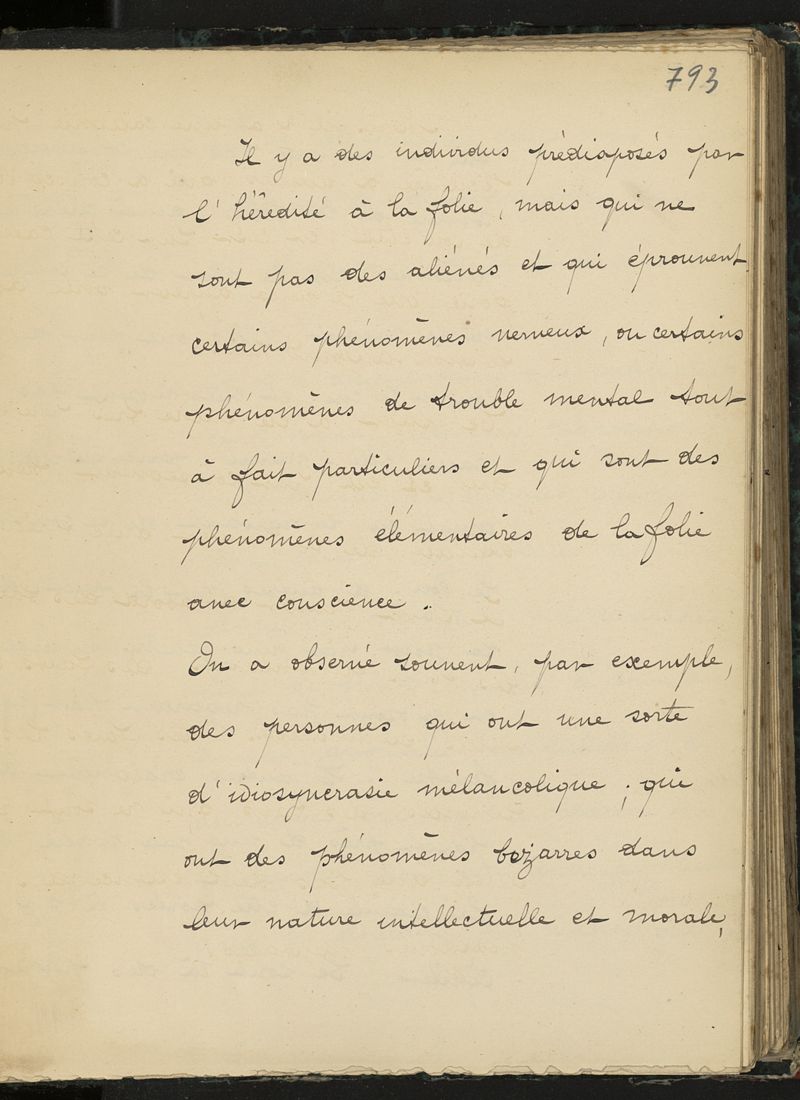 793
Il y a des individus prédisposés par
l'hérédité à la folie, mais qui ne
sont pas des aliénés et qui éprouvent
certains phénomènes nerveux, ou certains
phénomènes de trouble mental tout
à fait particuliers et qui sont des
phénomènes élémentaires de la folie
avec conscience.
On a observé souvent, par exemple,
des personnes qui ont une sorte
d'idiosyncrasie mélancolique ; qui
ont des phénomènes bizarres dans
leur nature intellectuelle et morale,